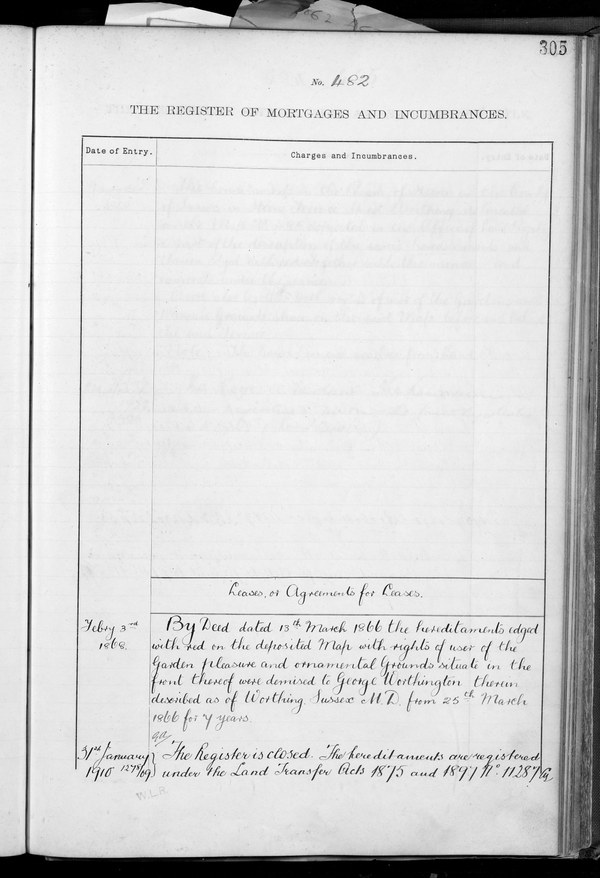 305
No. 482
THE REGISTER OF MORTGAGES AND INCUMBRANCES.
Date of Entry.
Charges and Incumbrances.
Leases, or Agreements for Leases.
Febry 3rd
1868.
By Deed dated 13th March 1866 the hereditaments edged
with red on the deposited Map with rights of user of the
Garden pleasure and ornamental Grounds situate in the
front thereof were demised to George Worthington therein
described as of Worthing, Sussex M.D. from 25th March
1866 for 7 years.
31st January
1910 1278/09
The Register is closed. The hereditaments are registered
under the Land Transfer Acts 1875 and 1897 No. 11287
W.L.R.